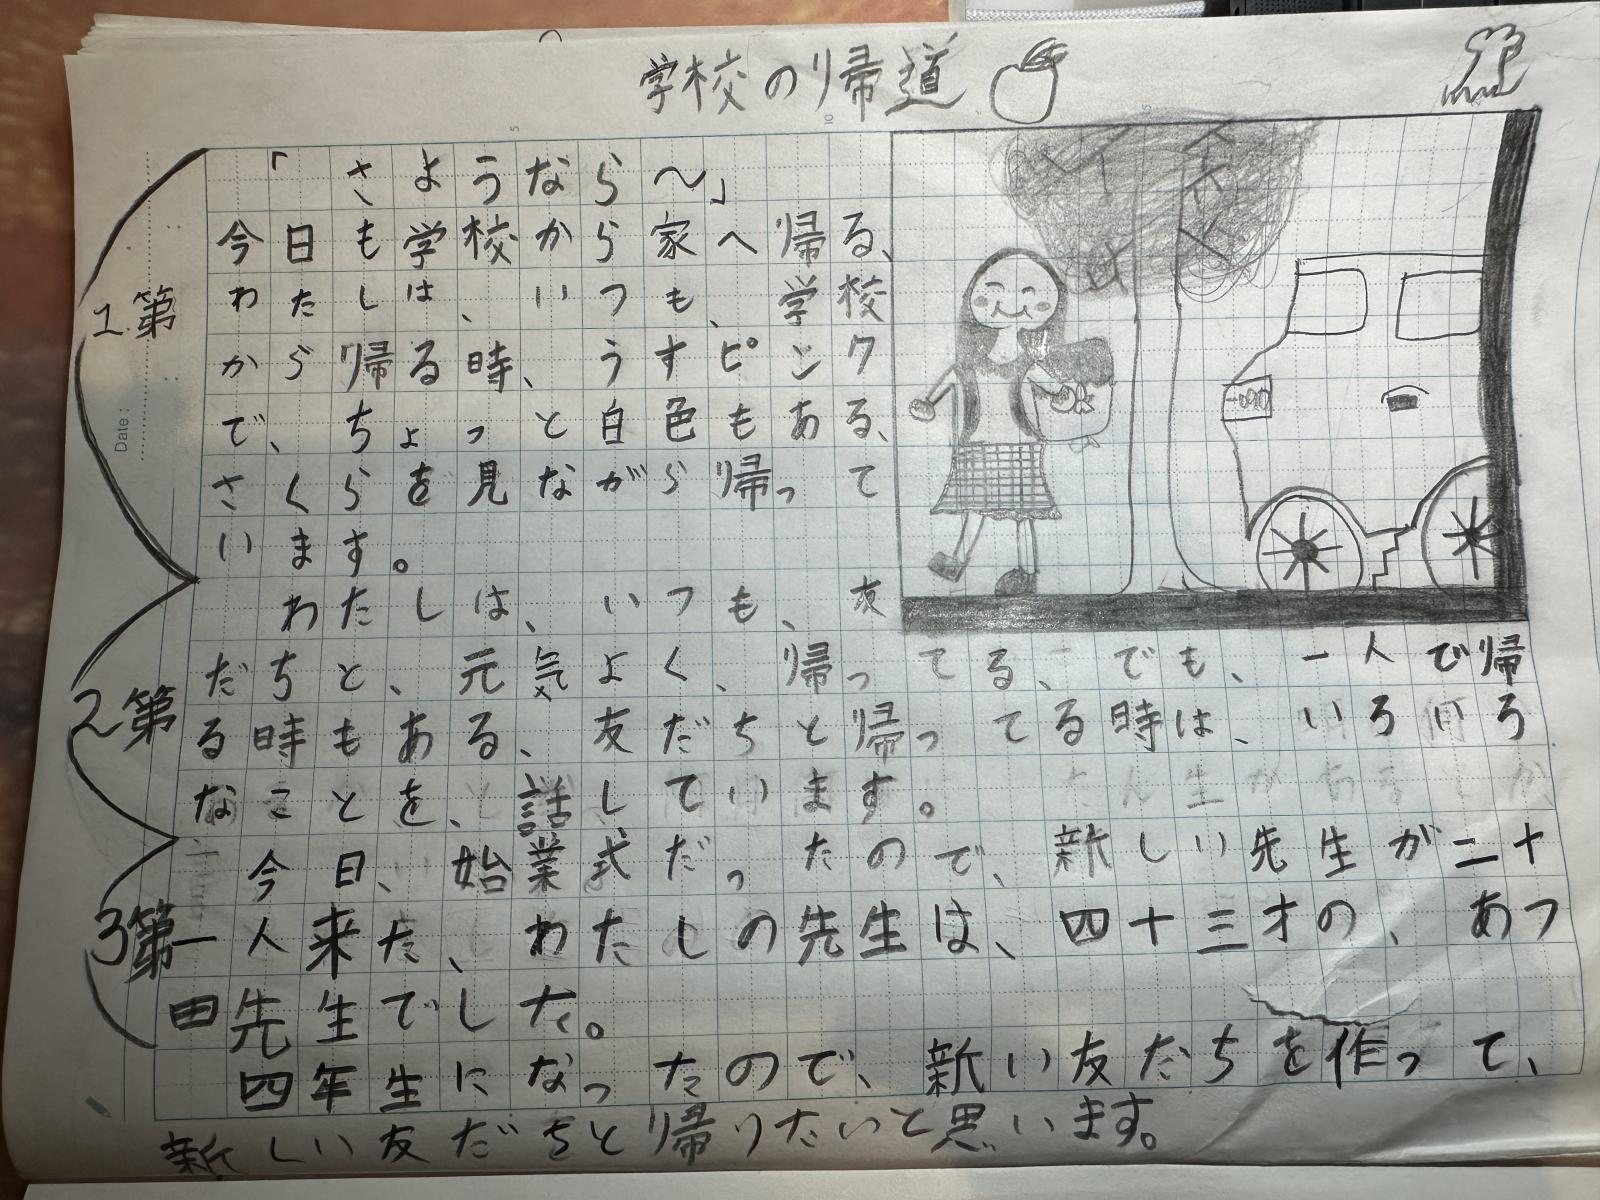 学校の帰道
「さようなら〜」
今日も学校から家へ帰る、
わたしは、いつも、学校
から帰る時、うすピンク
で、ちょっと白色もある、
さくらを見ながら帰って
います。
わたしは、いつも、友
だちと、元気よく、帰ってる、でも、一人で帰
る時もある、友だちと帰ってる時は、いろいろ
なことを、話しています。
今日、始業式だったので、新しい先生が二十
一人来た、わたしの先生は、四十三才の、あつ
田先生でした。
四年生になったので、新い友だちを作って、
新しい友だちと帰りたいと思います。
1第
2第
3第
Date:
5
10